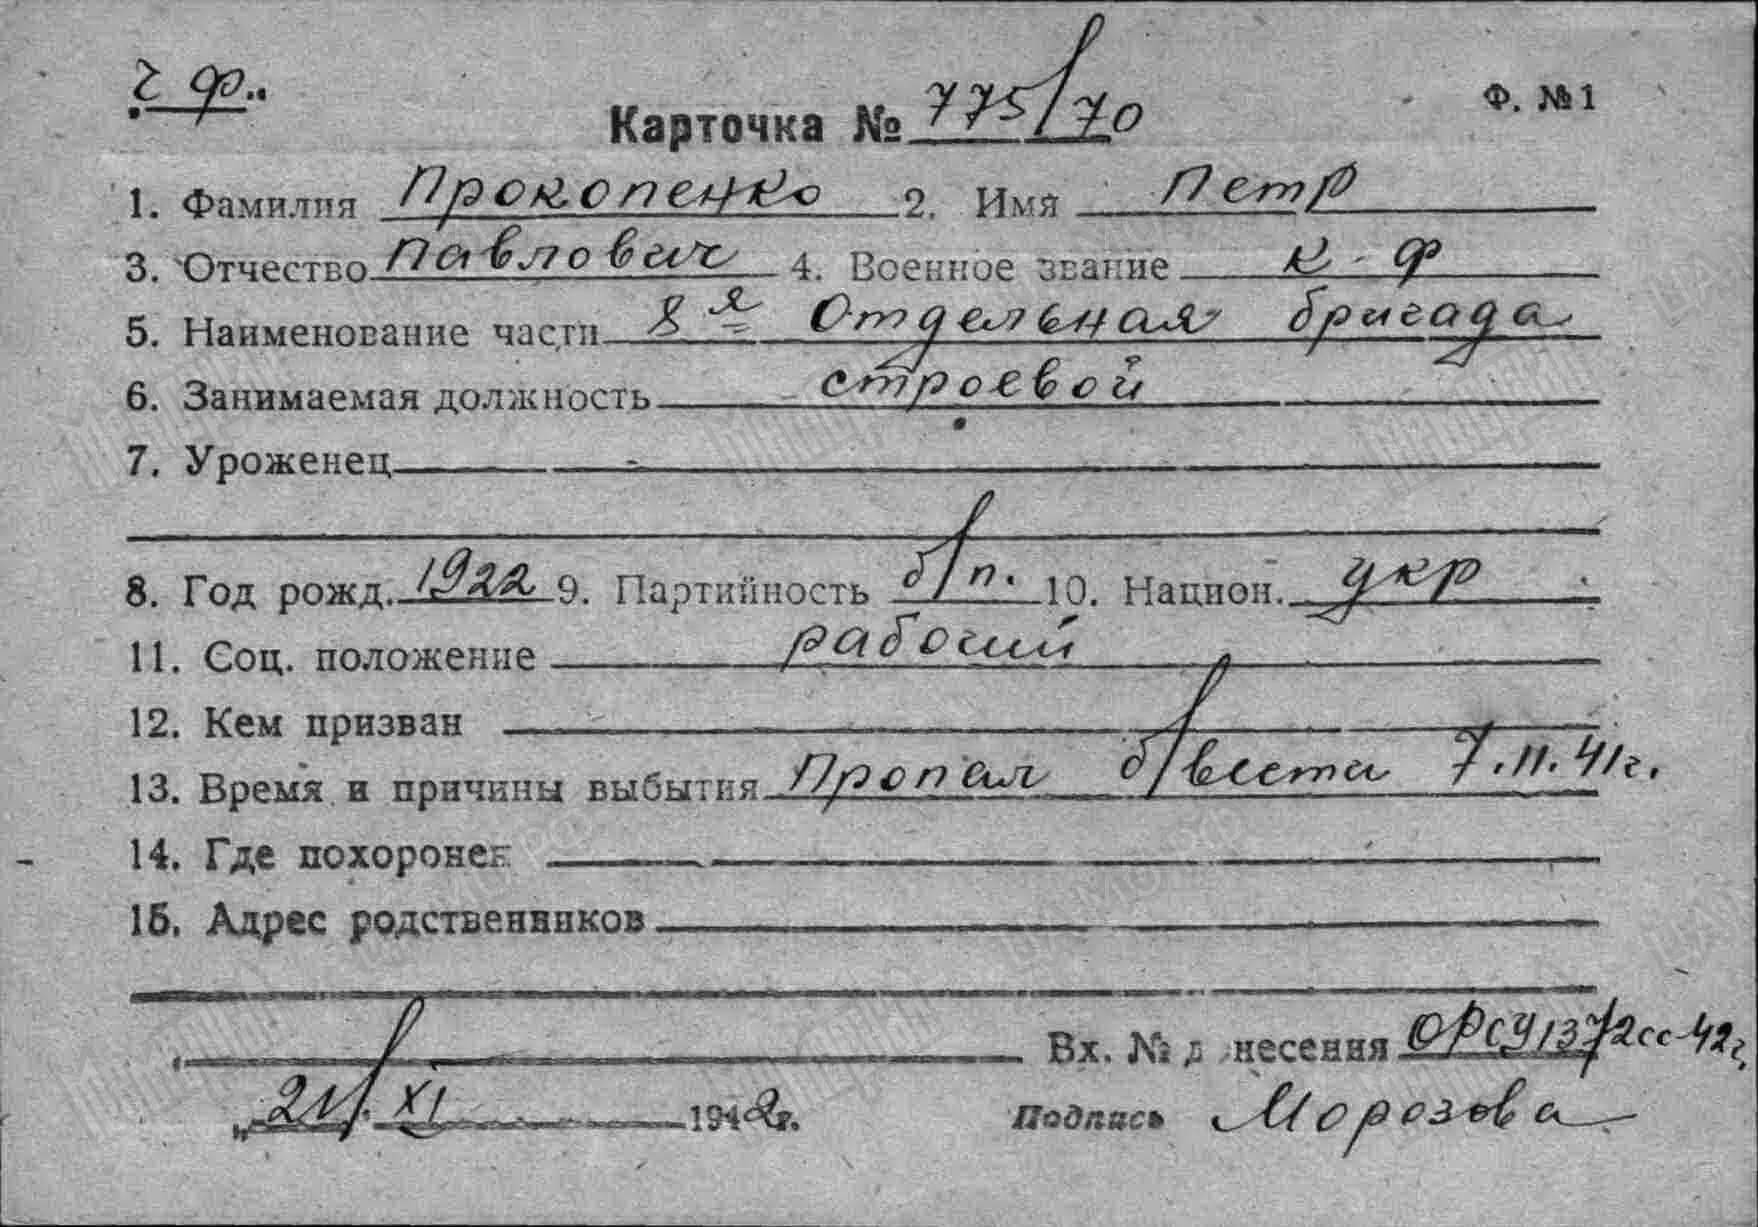 ч ф..
Ф. №1
Карточка № 775/70
1. Фамилия Прокопенко 2. Имя Петр
3. Отчество Павлович 4. Военное звание к-ф
5. Наименование части 8я Отдельная бригада
6. Занимаемая должность строевой
7. Уроженец
8. Год рожд. 1922 9. Партийность б/п. 10. Национ. укр
11. Соц. положение рабочий
12. Кем призван
13. Время и причины выбытия Пропал б/вести 7.11.41г.
14. Где похоронен
15. Адрес родственников
Вх. № донесения ОРСУ1372сс-42г,
"21/. XI 1942г. Подпись Морозова